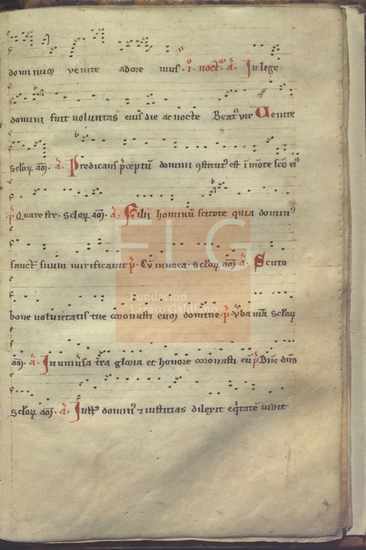 dominum venite adore mus. i. noct. a. In lege
domini fuit voluntas eius die ac nocte Beat' vir Venite
sclor. am. a. Predicans pceptum domini constitut' est i mote sco ei'
p. Quare fre. sclor. am. a. Filii hominum scitote quia domin'
sanct. suum mirificavit p. Cum invoca. sclor. am. a. Scuto
bone voluntatis tue coronasti eum domine. p. Vba mea. sclor.
am. a. In univsa tra gloria et honore coronasti eu p. Dne dns
sclor. am. a. Just' domin' i iustitias dilexit eqtate vidit
FLG
Fundación